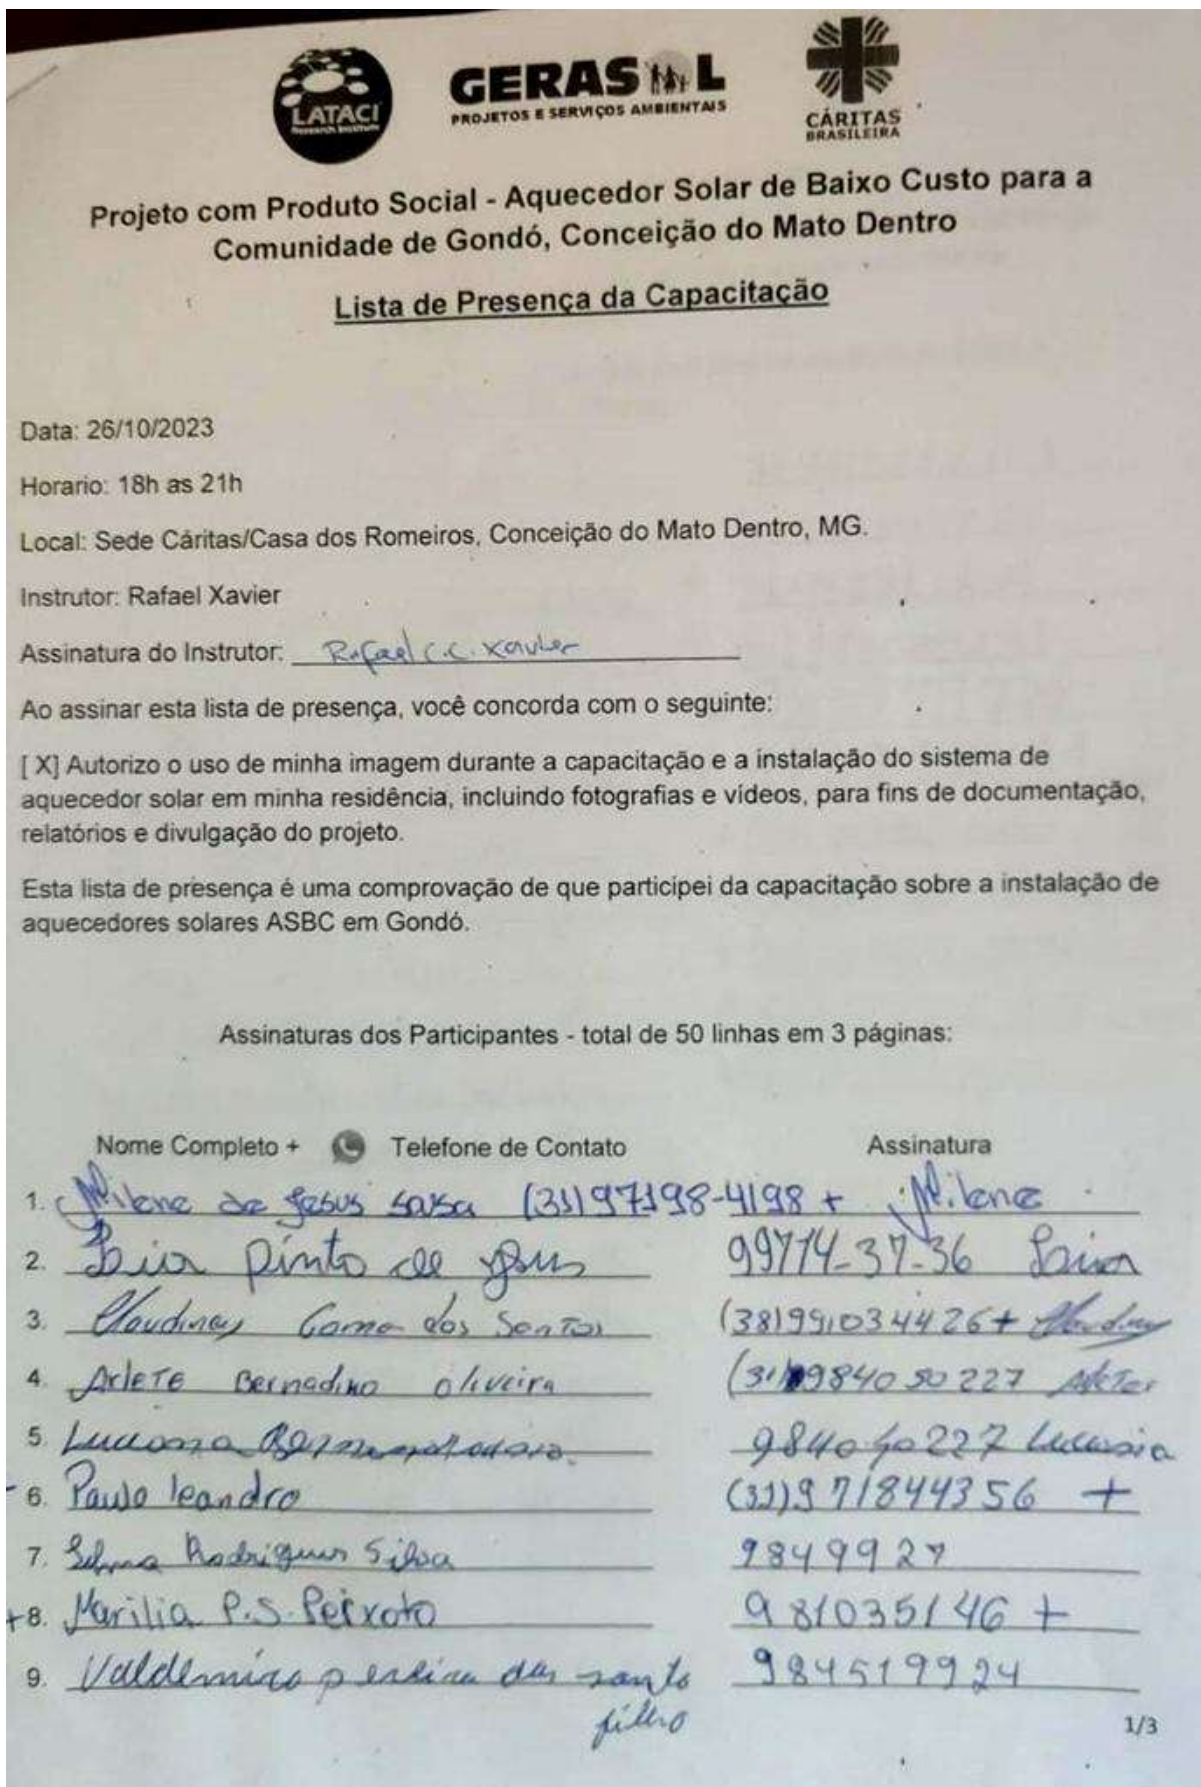 LATACI
Research Institute
GERASOL
PROJETOS E SERVIÇOS AMBIENTAIS
CÁRITAS
BRASILEIRA
Projeto com Produto Social - Aquecedor Solar de Baixo Custo para a
Comunidade de Gondó, Conceição do Mato Dentro
Lista de Presença da Capacitação
Data: 26/10/2023
Horario: 18h as 21h
Local: Sede Cáritas/Casa dos Romeiros, Conceição do Mato Dentro, MG.
Instrutor: Rafael Xavier
Assinatura do Instrutor: Rafael C.C. Xavier
Ao assinar esta lista de presença, você concorda com o seguinte:
[ X] Autorizo o uso de minha imagem durante a capacitação e a instalação do sistema de
aquecedor solar em minha residência, incluindo fotografias e vídeos, para fins de documentação,
relatórios e divulgação do projeto.
Esta lista de presença é uma comprovação de que participei da capacitação sobre a instalação de
aquecedores solares ASBC em Gondó.
Assinaturas dos Participantes - total de 50 linhas em 3 páginas:
Nome Completo + Telefone de Contato Assinatura
1. Milene de Jesus (31)97198-4198 + Milene
2. pinto de 99714-37-36
3. Claudiney Gama dos Santos (38)991034426+
4. Arlete Bernadino oliveira (31)984050227
5. Luciana
6. Paulo leandro (31)971844356 +
7. Rodrigues Silva 9849927
+8. Marilia P.S. Peixoto 981035146 +
9. Valdemiro pereira dos santo 984519924
filho
1/3